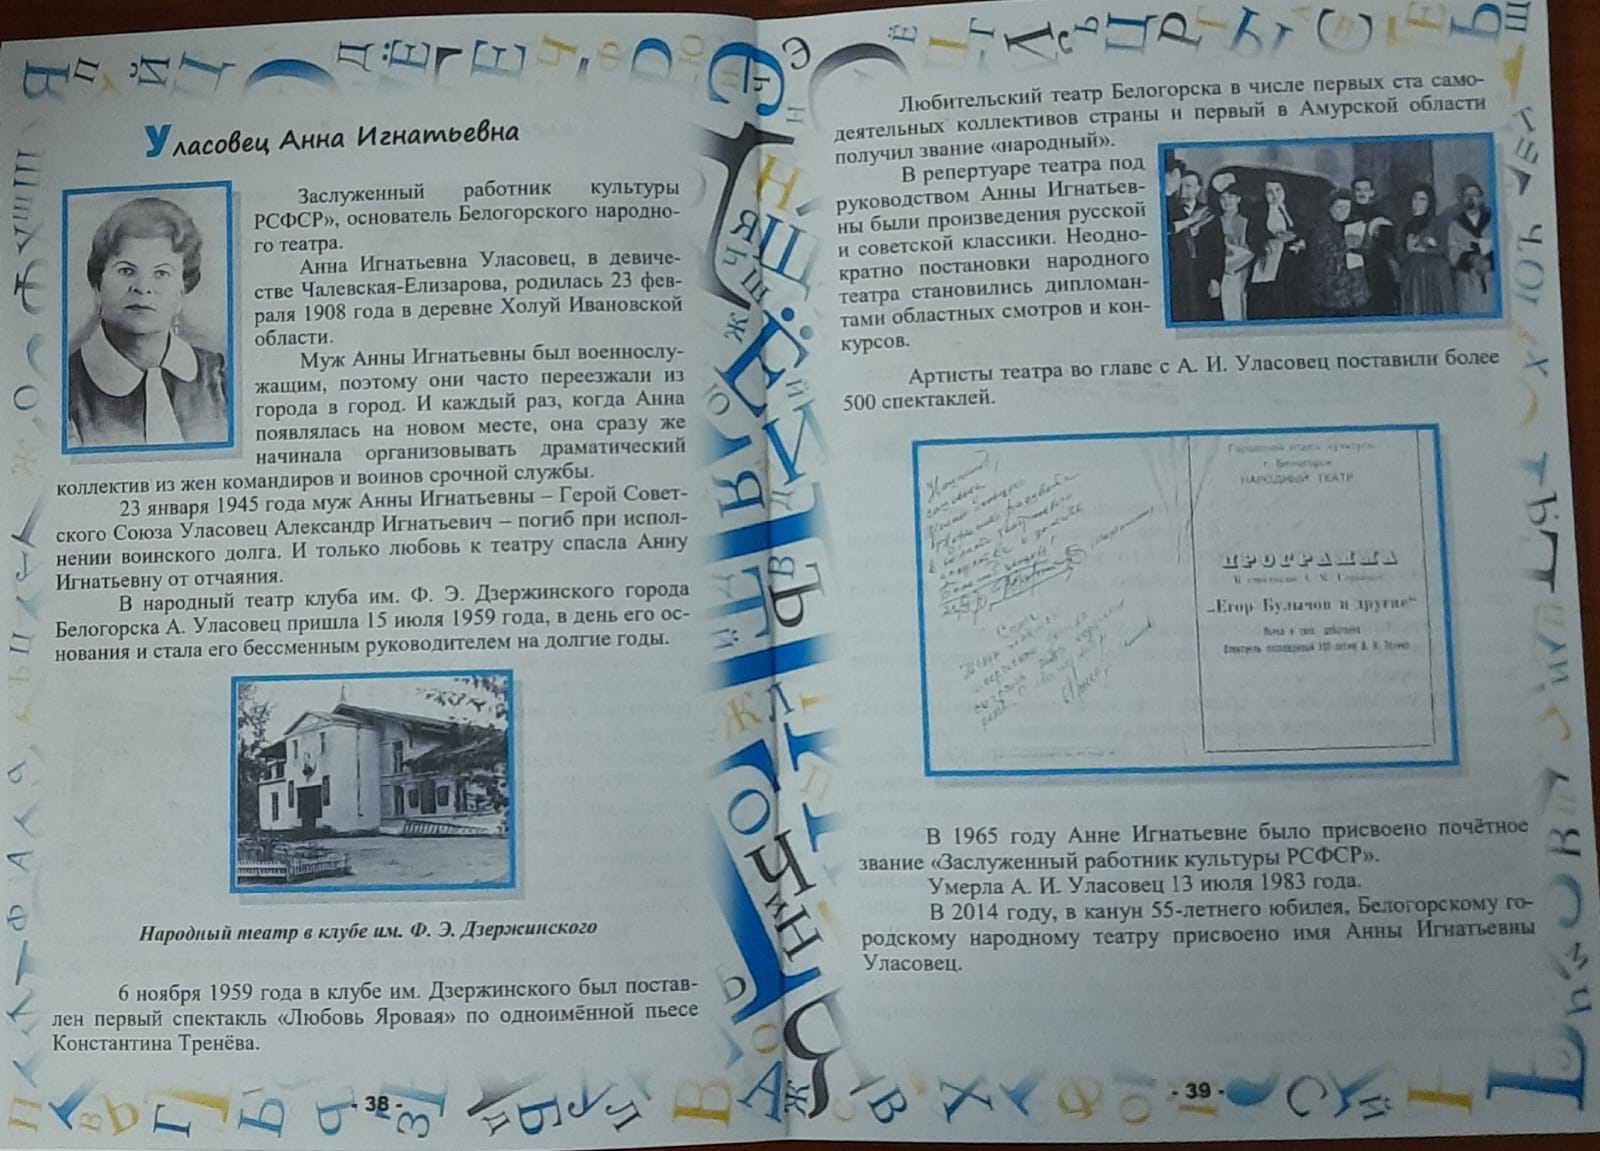 Уласовец Анна Игнатьевна
Заслуженный работник культуры
РСФСР», основатель Белогорского народно-
го театра.
Анна Игнатьевна Уласовец, в девиче-
стве Чалевская-Елизарова, родилась 23 фев-
раля 1908 года в деревне Холуй Ивановской
области.
Муж Анны Игнатьевны был военнослу-
жащим, поэтому они часто переезжали из
города в город. И каждый раз, когда Анна
появлялась на новом месте, она сразу же
начинала организовывать драматический
коллектив из жен командиров и воинов срочной службы.
23 января 1945 года муж Анны Игнатьевны – Герой Совет-
ского Союза Уласовец Александр Игнатьевич – погиб при испол-
нении воинского долга. И только любовь к театру спасла Анну
Игнатьевну от отчаяния.
В народный театр клуба им. Ф. Э. Дзержинского города
Белогорска А. Уласовец пришла 15 июля 1959 года, в день его ос-
нования и стала его бессменным руководителем на долгие годы.
Народный театр в клубе им. Ф. Э. Дзержинского
6 ноября 1959 года в клубе им. Дзержинского был постав-
лен первый спектакль «Любовь Яровая» по одноимённой пьесе
Константина Тренёва.
- 38 -
Любительский театр Белогорска в числе первых ста само-
деятельных коллективов страны и первый в Амурской области
получил звание «народный».
В репертуаре театра под
руководством Анны Игнатьев-
ны были произведения русской
и советской классики. Неодно-
кратно постановки народного
театра становились дипломан-
тами областных смотров и кон-
курсов.
Артисты театра во главе с А. И. Уласовец поставили более
500 спектаклей.
Городской отдел культуры
г. Белогорск
НАРОДНЫЙ ТЕАТР
ПРОГРАММА
„Егор Булычов и другие“
В 1965 году Анне Игнатьевне было присвоено почётное
звание «Заслуженный работник культуры РСФСР».
Умерла А. И. Уласовец 13 июля 1983 года.
В 2014 году, в канун 55-летнего юбилея, Белогорскому го-
родскому народному театру присвоено имя Анны Игнатьевны
Уласовец.
- 39 -